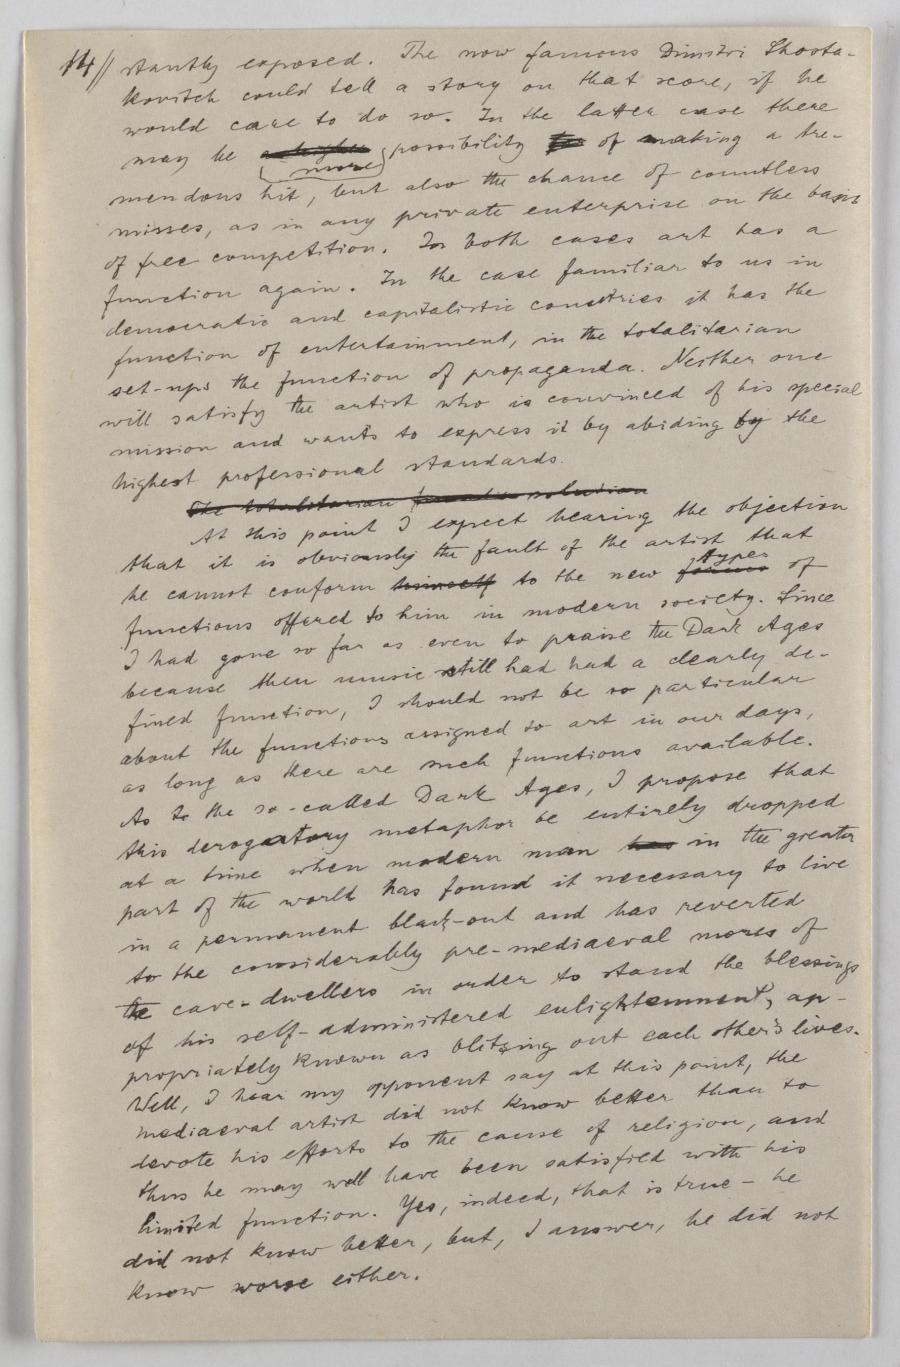 14// stantly exposed. The now famous Dimitri Shosta-
kovitch could tell a story on that score, if he
would care to do so. In the latter case there
may be more possibility of making a tre-
mendous hit, but also the chance of countless
misses, as in any private enterprise on the basis
of free competition. In both cases art has a
function again. In the case familiar to us in
democratic and capitalistic countries it has the
function of entertainment, in the totalitarian
set-ups the function of propaganda. Neither one
will satisfy the artist who is convinced of his special
mission and wants to express it by abiding by the
highest professional standards.
The totalitarian solution
At this point I expect hearing the objection
that it is obviously the fault of the artist that
he cannot conform himself to the new forms types of
functions offered to him in modern society. Since
I had gone so far as even to praise the Dark Ages
because then music still had had a clearly de-
fined function, I should not be so particular
about the functions assigned to art in our days,
as long as there are such functions available.
As to the so-called Dark Ages, I propose that
this derogatory metaphor be entirely dropped
at a time when modern man has in the greater
part of the world has found it necessary to live
in a permanent black-out and has reverted
to the considerably pre-mediaeval mores of
the cave-dwellers in order to stand the blessings
of his self-administered enlightenment, ap-
propriately known as blitzing out each other's lives.
Well, I hear my opponent say at this point, the
mediaeval artist did not know better than to
devote his efforts to the cause of religion, and
thus he may well have been satisfied with his
limited function. Yes, indeed, that is true - he
did not know better, but, I answer, he did not
know worse either.